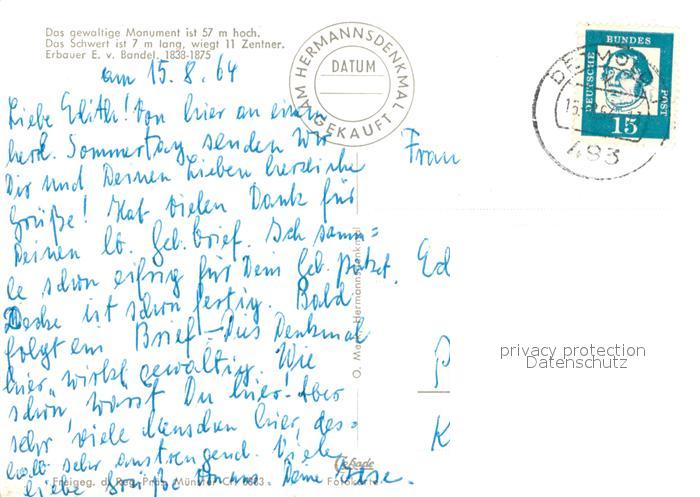 Das gewaltige Monument ist 57 m hoch.
Das Schwert ist 7 m lang, wiegt 11 Zentner.
Erbauer E. v. Bandel, 1838-1875
AM HERMANNSDENKMAL
DATUM
GEKAUFT
DEUTSCHE
BUNDES
POST
15
DETMOLD
493
am 15.8.64
Liebe Edith! Von hier an einem
herrl. Sommertag senden wir
Dir und Deinen Lieben herzliche
Grüße! Hab vielen Dank für
Deinen lb. Geb. Brief. Ich samm=
le schon eifrig für Dein Geb.
Decke ist schon fertig. Bald
folgt ein Brief. Dies Denkmal
hier wirkt gewaltig. Wie
schön, warst Du hier. Aber
sehr viele Menschen hier, des=
halb sehr anstrengend. Viele
liebe Grüße Deine
Frau
Ed
P
K
O. Hermannsdenkmal
Freigeg. d. Reg. Präs. Münster
Fotokarte
privacy protection
Datenschutz